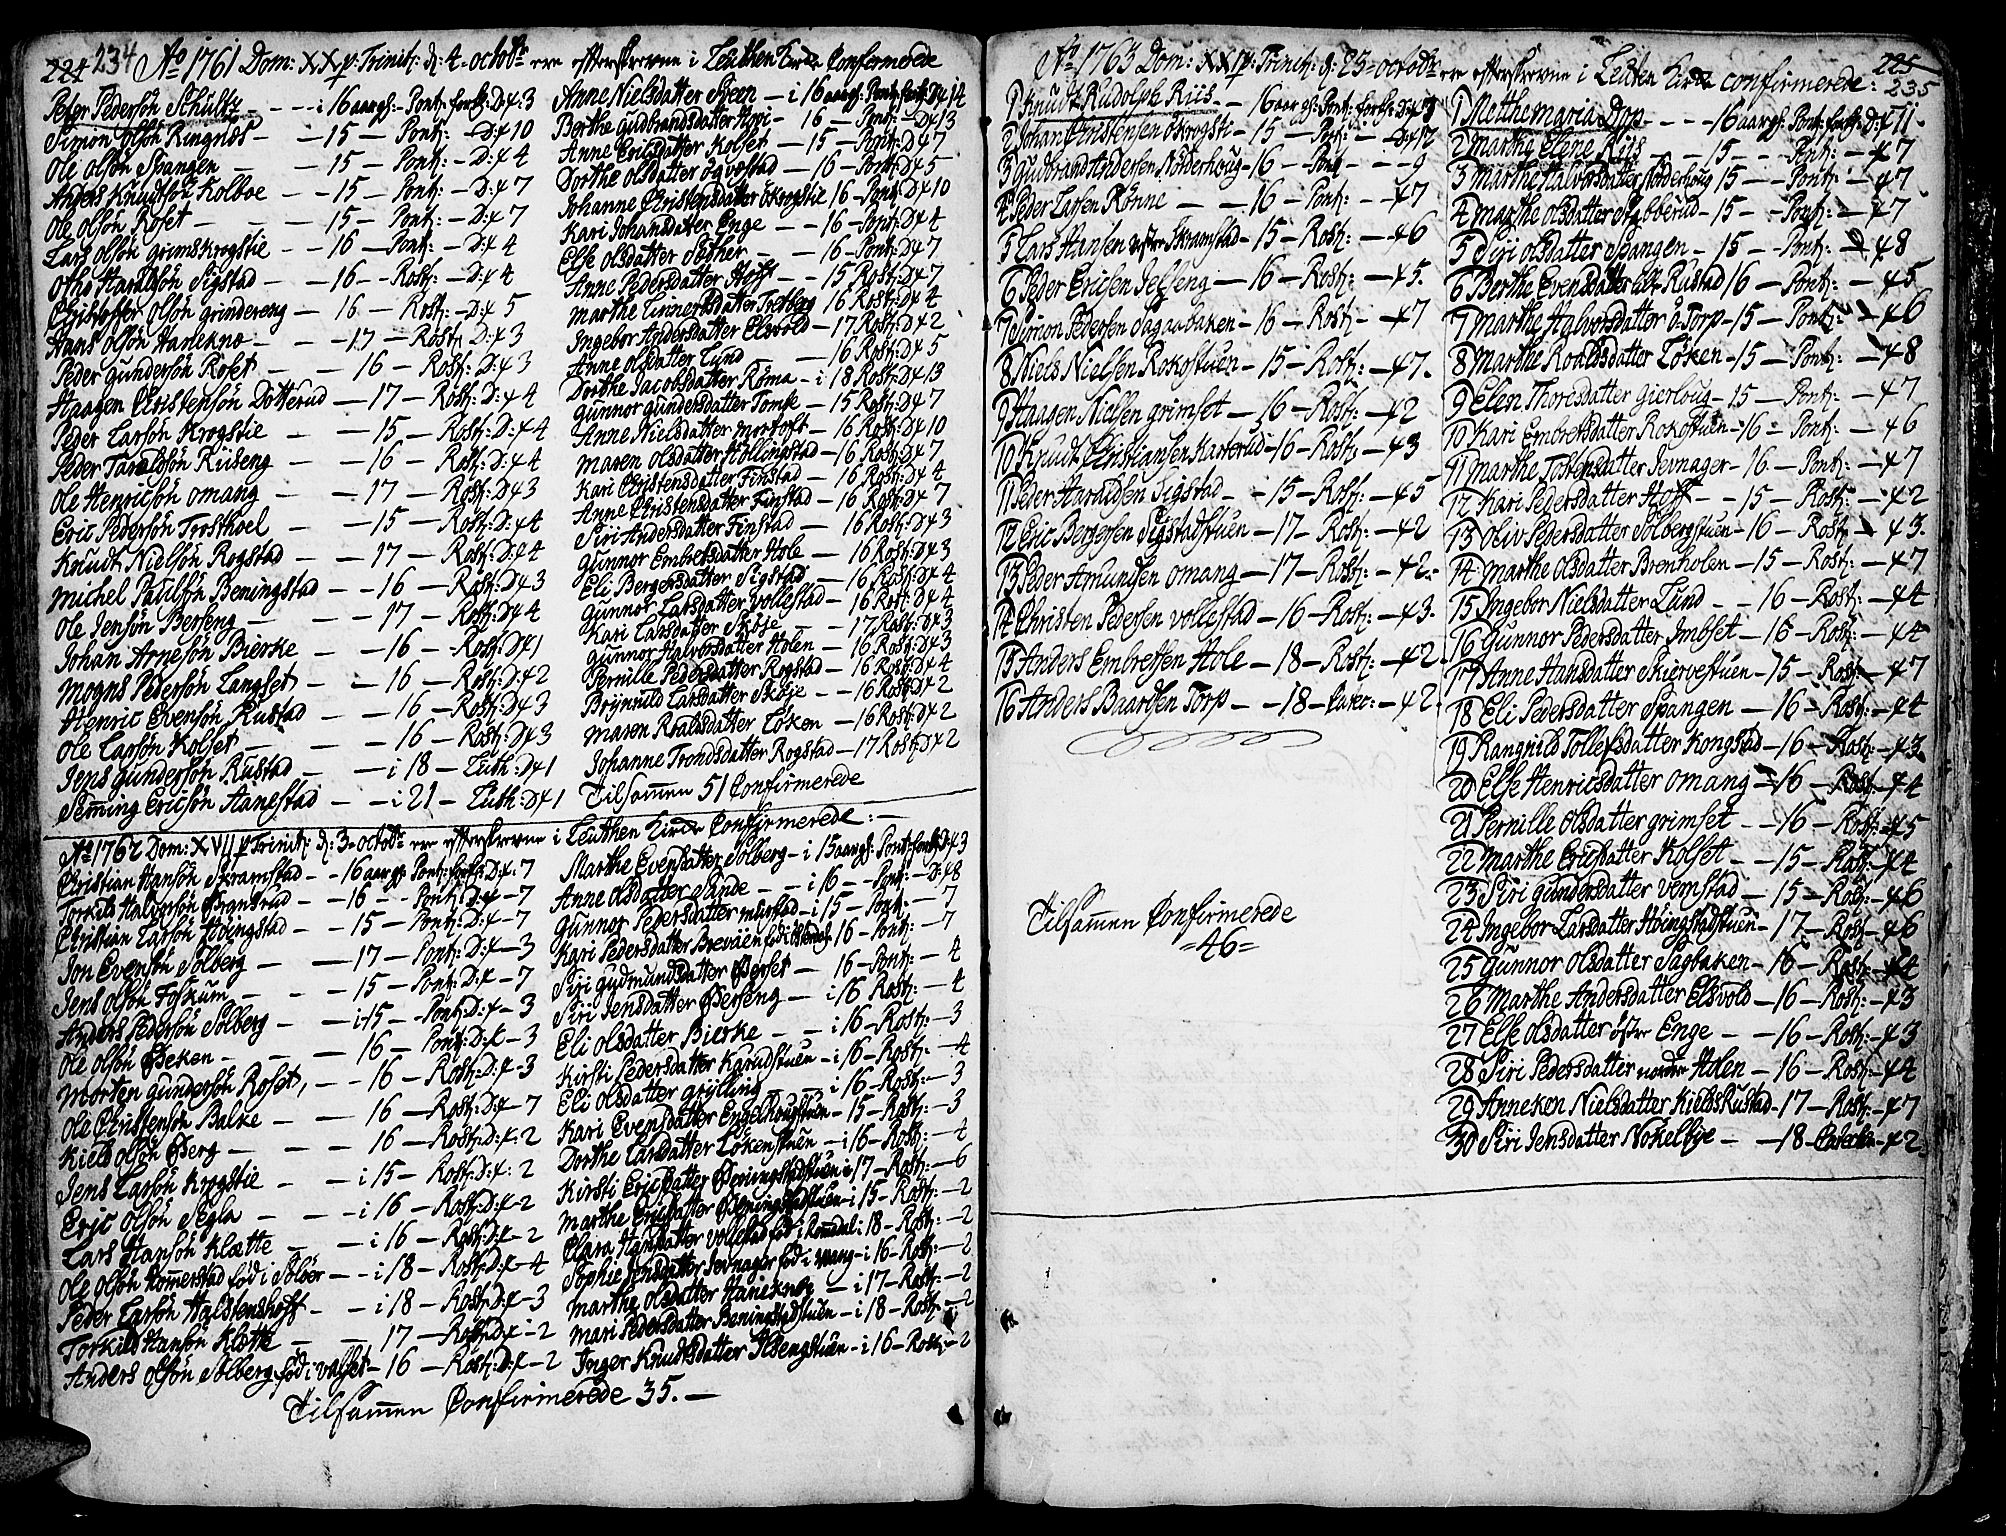 224 234 Ao 1761 Dom: XX p: Trinit: d: 4 octobr ere efterskrevne i Leuthen Kirke Confirmerede
Peter Pedersön Schultz - - - i 16 aargl: Pont: forkl: D: 43
Simon olsön Ringnæs - - 15 - Pont: - D: 410
Ole olsön Spangen - - 15 - Pont: - D: 44
Anders Knudtsön Kolboe - - 15 - Pont: - D: 47
Ole olsön Roset - - 15 - Pont: - D: 47
Lars olsön grimskrogstie - - 16 - Pont: - D: 44
Haralsön Sigstad - - 16 - Rost: - D: 44
Christoffer olsön grindereng - 16 - Rost: - D: 45
Hans olsön Haneknoe - - 17 - Rost: D: 43
Peder gundersön Roset - - 16 - Rost: D: 43
Haagen Christensön Dotterud - 17 - Rost: D: 44
Peder Larsön Krogstie - - 15 - Rost: D: 44
Peder Taralsön Riiseng - - 16 - Rost: D: 44
Ole Henricsön omang - - 17 - Rost: D43
Eric Pedersön Trosthoel - - 15 - Rost: D: 44
Knudt Nielsön Rogstad - - 17 - Rost: D: 44
Michel Paulsön Beningstad - - 16 - Rost: D43
Ole Jensön Berseng - - 17 - Rost: D44
Johan Arnesön Bierke - - 16 - Rost: D41
Mogns Pedersön Langset - - 16 - Rost: D42
Henric Evensön Rustad - - 16 - Rost: D43
Ole Larsön Kolset - - 16 - Rost: D43
Jens gundersön Rustad - - i 18 - Luth: D41
Semming Ericsön Aanestad - - i 21 - Luth: D41
Anne Nielsdatter Steen - i 16 aargl: Pont: forkl: D414
Berthe gudbrandsdatter Hori - 16 - Pont: - D413
Anne Ericsdatter Kolset - 15 - Pont: D47
Dorthe olsdatter ögvolstad - 16 - Pont: D45
Johanne Christensdatter ökrogstie 16 - Pont: D410
Kari Johansdatter Enge - - 16 - Pont: D44
Else olsdatter Sæther - - 16 - Pont: D47
Anne Pedersdatter Hoff - - 15 Rost: D47
Marthe Linnertsdatter Torberg 16 Rost: D44
Ingebor Andersdatter Elsvold - 17 Rost: D42
Anne olsdatter Lund - - 16 Rost: D45
Dorthe Jacobsdatter Röma - i 18 Rost: D413
Gunnor gundersdatter Tomle - 15 Rost: D47
Anne Nielsdatter mortoft - 16 Rost: D410
Maren olsdatter Hollingstad - 16 Rost: D47
Kari Christensdatter Finstad - 16 Rost: D44
Anne Christensdatter Finstad - 16 Rost: D47
Siri Andersdatter Finstad - 16 Rost: D43
Gunnor Embretsdatter Hole - 16 Rost: D43
Eli Bergersdatter Sigstad - 16 Rost: D44
Gunnor Larsdatter Vollestad - 16 Rost: D44
Kari Larsdatter Skoje - - 17 Rost: D43
Gunnor Halvorsdatter Holen - 16 Rost: D43
Pernille Pedersdatter Rogstad - 16 Rost: D44
Brynnild Larsdatter Skoje - - 16 Rost: D42
Maren Roalsdatter Löken - 16 Rost: D42
Johanne Trondsdatter Rogstad - 17 Rost: D42
Tilsammen 51 Confirmerede
Ao 1762 Dom: XVII p: Trinit: d: 3 octobr ere efterskrevne i Leuthen Kirke Confirmerede: -
Christian Hansön Skramstad - - 16 aargl: Pont: forkl: D: 4 7
Torkild Halvorsön Grønsrud - - 16 - - Pont: D: 4 - 7
Christian Larsön Hvingstad - - 15 - Pont: D: 4 - 7
Jon Evensön Solberg - - 17 - Pont: D: 4 - 3
Jens olsön Foskum - - 15 - Pont: D: 4 - 7
Anders Pedersön Solberg - - i 15 - - Pont: D: 4 - 3
Ole olsön Beken - - 16 - Pont: D: 4 - 3
Morten gundersön Roset, - - 16 - Rost: D: 4 - 3
Ole Christensön Balke - - 16 - Rost: D: 4 - 7
Kield olsön Berg - - 16 - Rost: D: 4 - 2
Jens Larsön Krogstie - - i 15 - Rost: D: 4 - 2
Eric olsön Segla - - i 16 - Rost: D: 4 - 2
Lars Hansön Klætte - - i 16 - Rost: D: 4 - 2
Ole olsön Hommerstad fød i Solöer - - i 18 - Rost: D: 4 - 4
Peder Larsön Halstenshoff - - i 18 - Rost: D: 4 - 3
Torkild Hansön Klætte - - 17 - Rost: D: 4 - 2
Anders olsön Solberg fød i valset - 16 - Rost: D: 4 - 2
Marthe Evensdatter Solberg - i 15 aargl: Pont: forkl: D43
Anne olsdatter Sande - - i 16 - - Pont: - D: 48
Gunnor Pedersdatter mustad - i 15 - Pont: - 7
Kari Pedersdatter Brevaien fød i 16 - Pont: - 7
Siri gudmundsdatter Berset - 16 - Pont: - 4
Siri Jensdatter Berseng - i 16 Rost: - 4
Eli olsdatter Bierke - - i 16 - Rost: - 3
Kirsti Pedersdatter Karudstuen - i 16 - Rost: - 4
Eli olsdatter grylling - - i 16 - Rost: - 3
Kari Evensdatter Engelhougstuen - 15 - Rost: - 3
Dorthe Larsdatter Lökenstuen - i 16 - Rost: - 4
Kirsti Ericsdatter Beningstadstuen i 17 - Rost: - 6
Marthe Ericsdatter Beningstadstuen - i 15 - Rost: - 2
Clara Hansdatter vollestad fød i Romdal i 18 - Rost: - 2
Sophie Jensdatter Jevnager fød i Vang - i 16 - Rost: - 2
Marthe olsdatter Haneknoe - i 17 - Rost: - 2
Mari Pedersdatter Beningstadstuen - i 18 - Rost: - 2
Inger Knudtsdatter Ilsengstuen - i 16 - Rost: - 2
Tilsammen Confirmerede 35. -
Ao 1763 Dom: XXI p: Trinit: d: 23 octobr ere efterskrevne i Leuten Kirke confirmerede: 225 235
1 Knudt Rudolph Riis - - 16 aargl: Pont: forkl: D: 413
2 Johan Christensen ökrogsti - 15 - Pont: - D: 412
3 Gudbrand Andersen Nörderhoug - 16 - Pont - - - 9
4 Peder Larsen Rönne - - 16 - Pont: - - 47
5 Lars Hansen östre Skramstad - 15 - Rost: - 46
6 Peder Ericsen Jelseng - 16 - Rost: - 45.
7 Simon Pedersen Sagaabaken - 16 - Rost: - 47
8 Niels Nielsen Rokostuen - 15 - Rost: - 47.
9 Haagen Nielsen grimset - 16 - Rost: - 42
10 Knudt Christiansen Karterud - 16 - Rost: - 43
11 Peder Haraldsen Sigstad - - 15 - Rost: - 45
12 Eric Bergersen Sigstadstuen - 17 - Rost: - 42
13 Peder Amundsen omang - 17 - Rost: - 42.
14 Christen Pedersen vollestad - 16 - Rost: - 43.
15 Anders Embretsen Hole - 18 - Rost: - 42.
16 Anders Baardsen Torp - - 18 - - 42.
Tilsammen Confirmerede
=46=
1 Metthe maria Dop - - - 16 aargl: Pont: forkl: D: 411
2 Marthe Elene Riis - - 15 - - Pont: - 47
3 Marthe Halvorsdatter Norderhoug 15 - - Pont: - 47
4 Marthe olsdatter Stybberud - 15 - - Pont: - 47
5 Siri olsdatter Spangen - 15 - - Pont: - 48
6 Berthe Evensdatter Rustad 16 - Pont: - 45
7 Marthe Halvorsdatter ö: Torp - 15 - Pont: - 46
8 Marthe Roaldsdatter Löken - 15 - Pont: - 48
9 Elen Thoresdatter gierloug - 15 - Pont: - 47
10 Kari Embretsdatter Rokostuen - 16 - Pont: - 46
11 Marthe Tostensdatter Jevnager - 16 - Pont: - 47
12 Kari Pedersdatter Hoff - - 15 - Rost: - 42
13 Oliv Pedersdatter Solbergstuen - 16 - Rost: - 43.
14 Marthe olsdatter Brenholen - 15 - Rost: - 47
15 Ingebor Nielsdatter Lund - - 16 - Rost: - 44
16 Gunnor Pedersdatter Imbset - 16 - Rost: - 44
17 Anne Hansdatter Skiervestuen - 15 - Rost: - 47
18 Eli Pedersdatter Spangen - 16 - Rost: - 44
19 Rangnild Tollefsdatter Kongstad - 16 - Rost: - 43
20 Else Henricsdatter omang - 16 - Rost: - 44
21 Pernille olsdatter grimset - - 16 - Rost: - 45
22 Marthe Ericsdatter Kolset - - 15 - Rost: - 44
23 Siri Gundersdatter vemstad - 15 - Rost: - 46
24 Ingebor Larsdatter Hvingstadstuen - 17 - Rost: - 46
25 Gunnor olsdatter Sagbaken - 16 - Rost: - 44
26 Marthe Andersdatter Elsvold - 16 - Rost: - 43
27 Else olsdatter östre Enge - - 16 - Rost: - 43
28 Siri Pedersdatter nordre Holen - 16 - Rost: - 44
29 Anneken Nielsdatter KieldsRustad - 17 - Rost: - 47
30 Siri Jensdatter Nokelbye - - 18 - - 42.